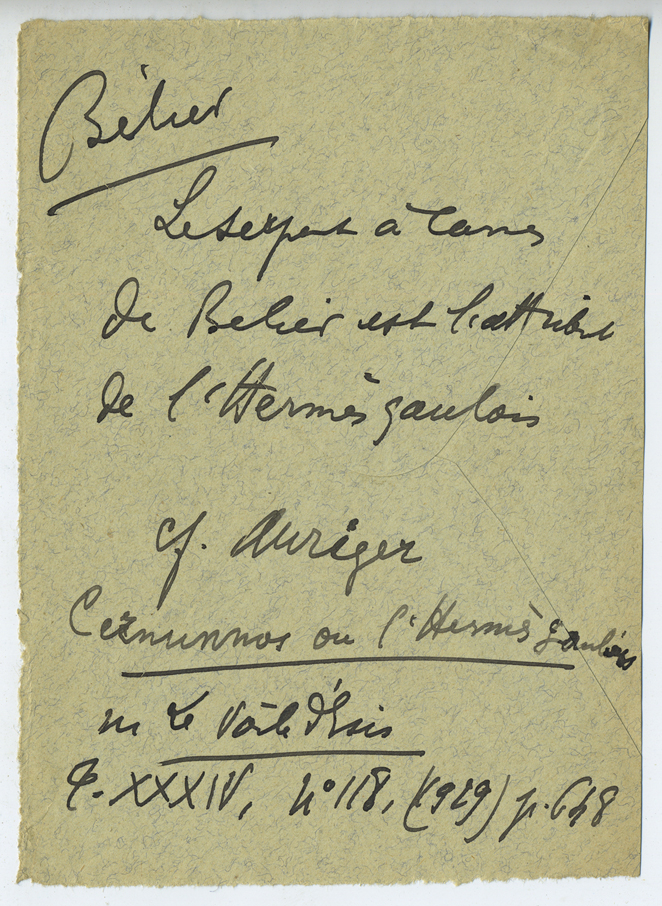 Bélier
Le serpent à cornes
de Belier est l'attribut
de l'Hermès gaulois
cf. Auriger
Cernunnos ou l'Hermès gaulois
in Le Voile d'Isis
T. XXXIV, n° 118, (1929) p. 648